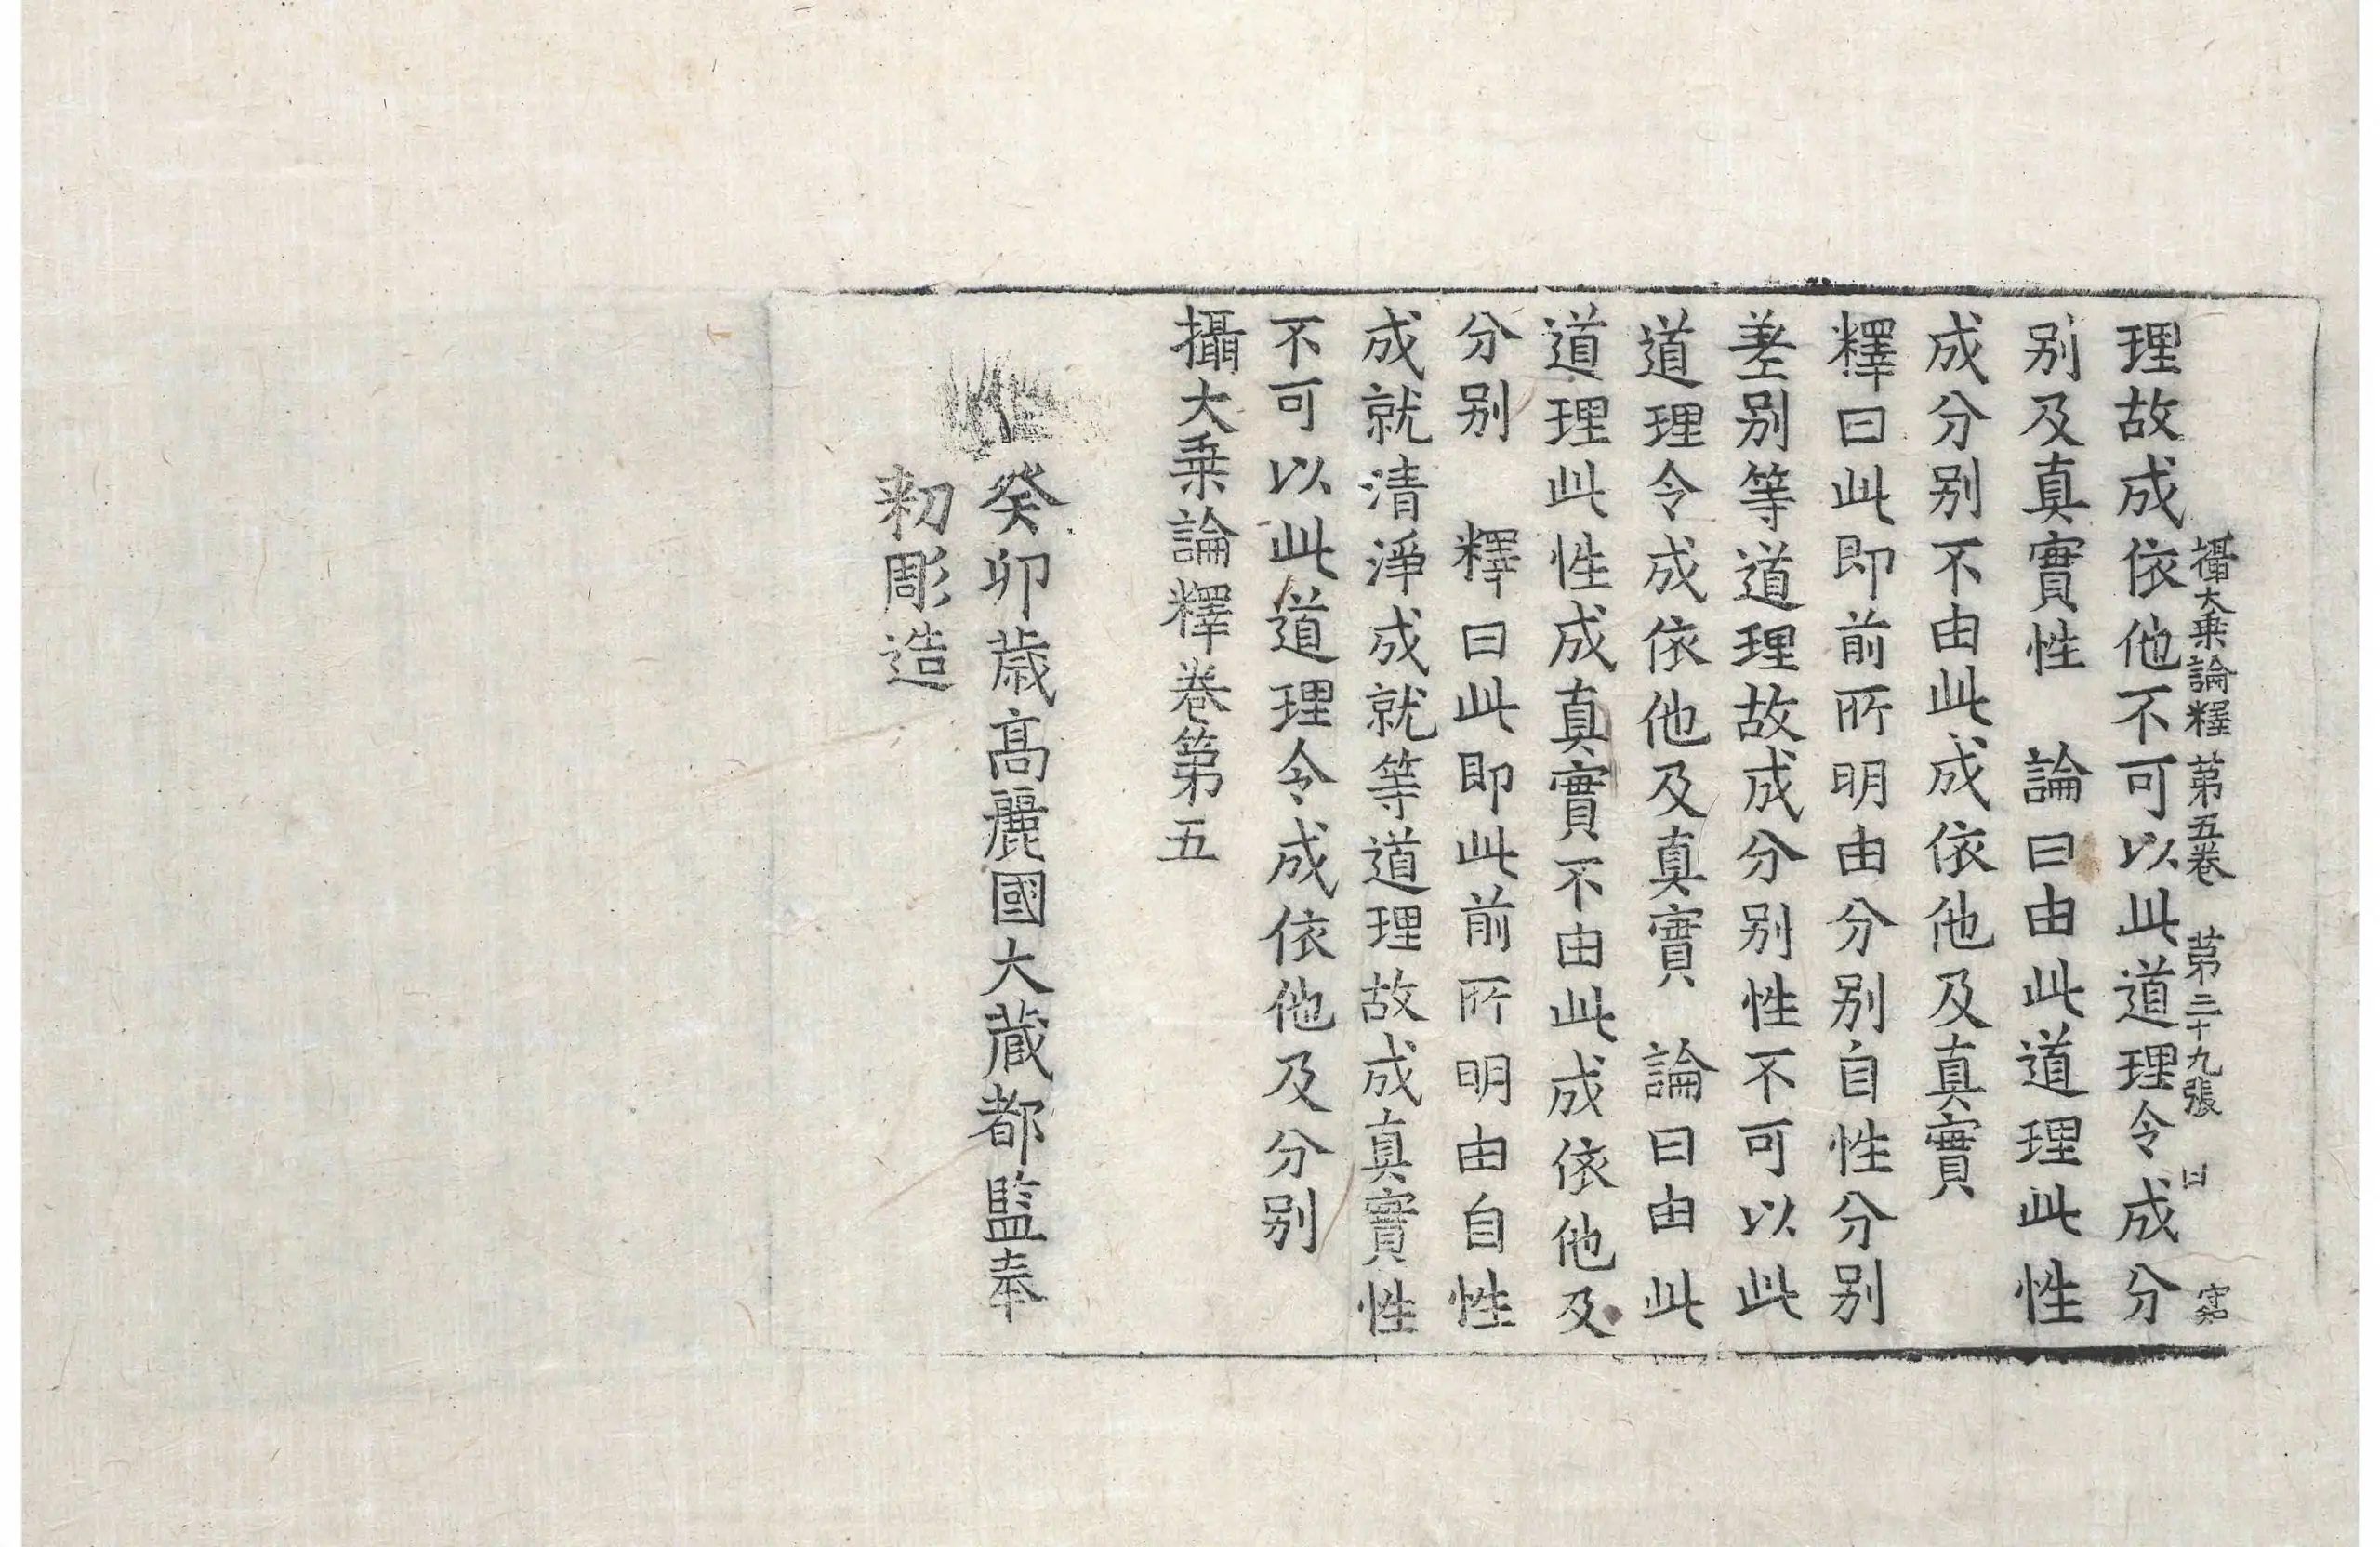 攝大乗論釋 第五卷 第三十九張
理故成依他不可以此道理令成分
别及真實性 論曰由此道理此性
成分别不由此成依他及真實
釋曰此即前所明由分别自性分别
差别等道理故成分别性不可以此
道理令成依他及真實 論曰由此
道理此性成真實不由此成依他及
分别 釋曰此即此前所明由自性
成就清淨成就等道理故成真實性
不可以此道理令成依他及分别
攝大乗論釋卷第五
癸卯歳高麗國大藏都監奉
勑彫造